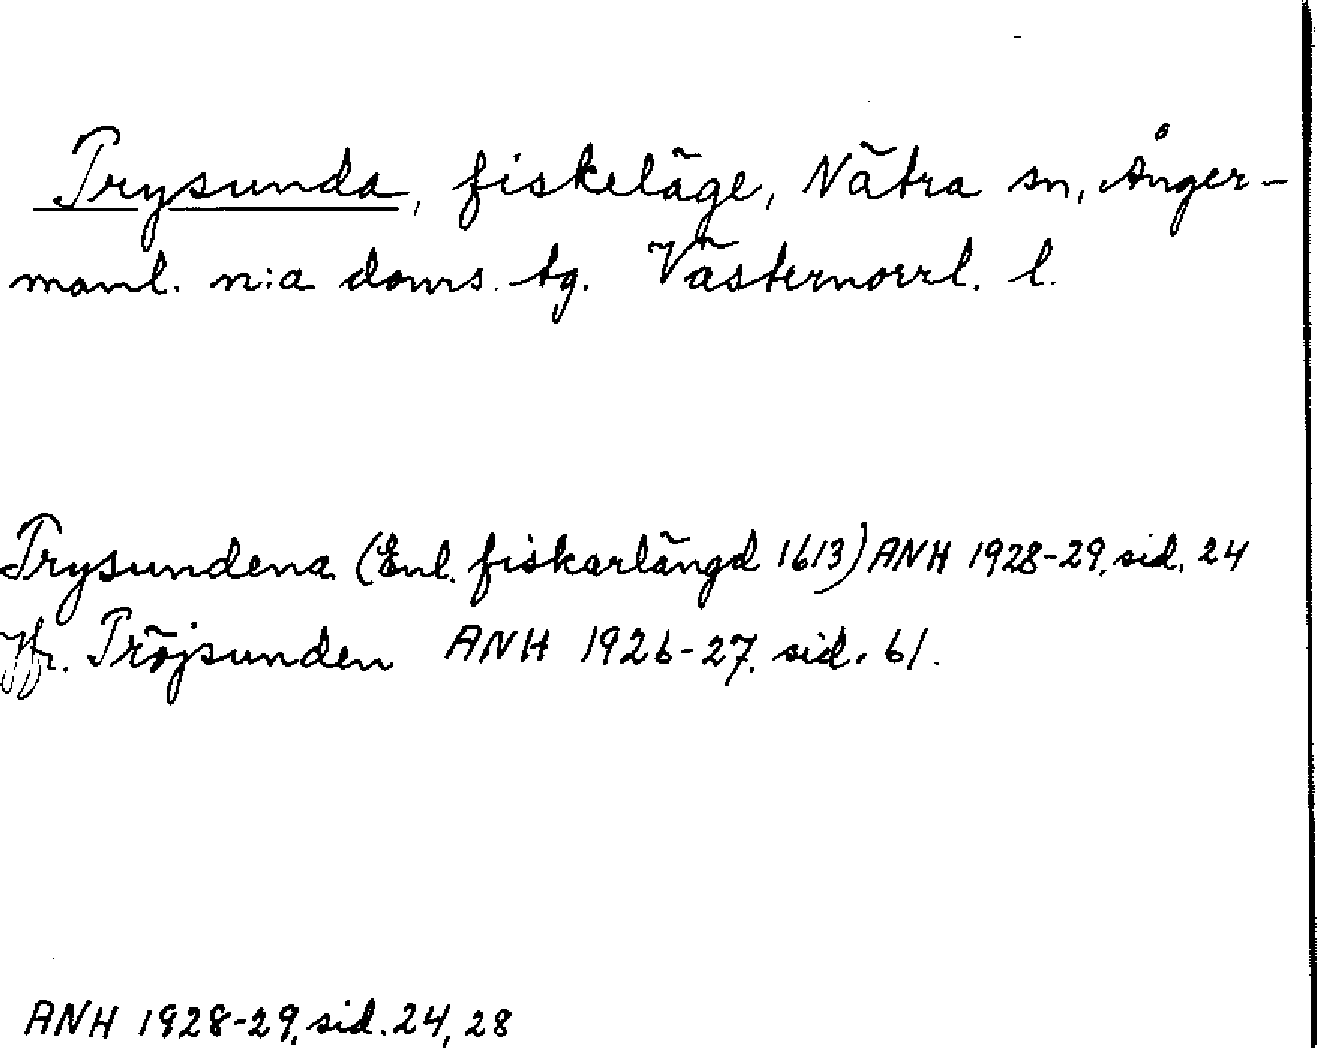 Trysunda, fiskeläge, Nätra sn, Ånger-
manl. n:a doms. tg. Västernorrl. l.
Trysundena (Enl. fiskarlängd 1613) ANH 1928-29, sid. 24
Jfr. Tröjsunden ANH 1926-27, sid. 61.
ANH 1928-29, sid. 24, 28